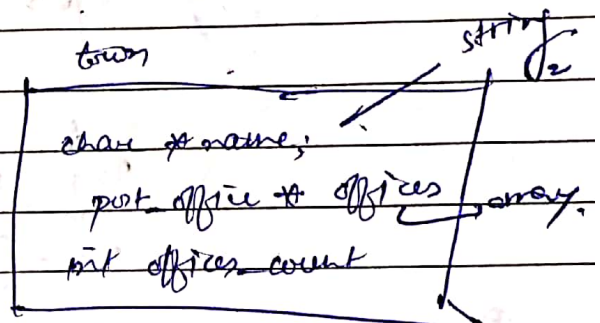 town
string
char *name;
post_office * offices array.
int offices_count